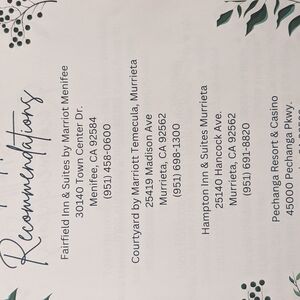 Recommendations
Fairfield Inn & Suites by Marriot Menifee
30140 Town Center Dr.
Menifee, CA 92584
(951) 458-0600
Courtyard by Marriott Temecula, Murrieta
25419 Madison Ave
Murrieta, CA 92562
(951) 698-1300
Hampton Inn & Suites Murrieta
25140 Hancock Ave.
Murrieta, CA 92562
(951) 691-8820
Pechanga Resort & Casino
45000 Pechanga Pkwy.